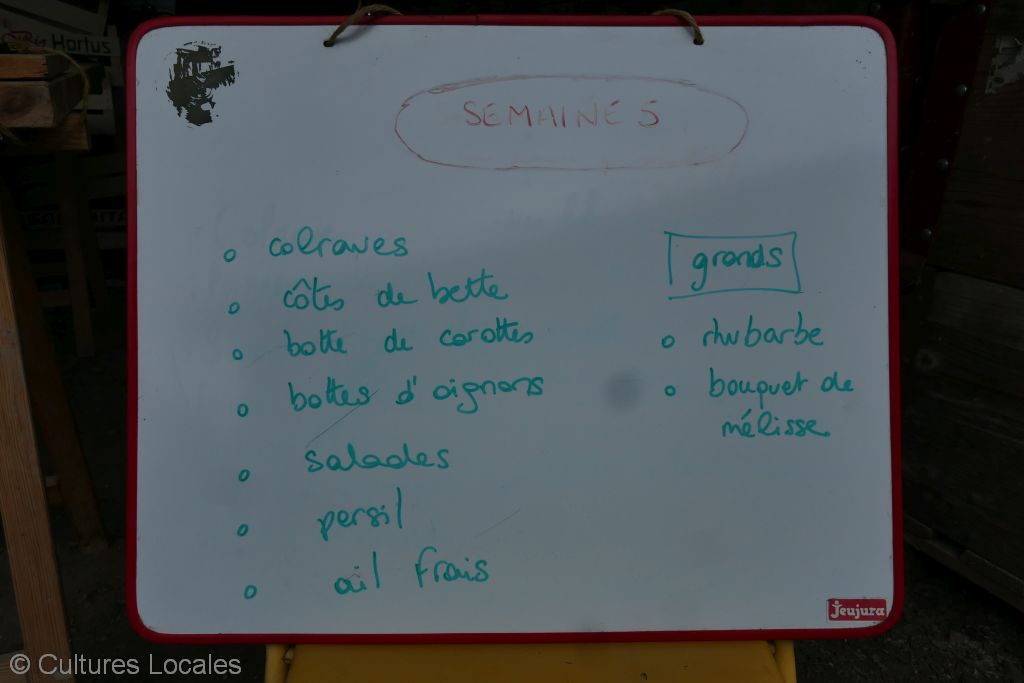 Bio Hortus
SEMAINE 5
colraves
côtes de bette
botte de carottes
bottes d'oignons
salades
persil
ail frais
grands
rhubarbe
bouquet de
mélisse
Jeujura
© Cultures Locales